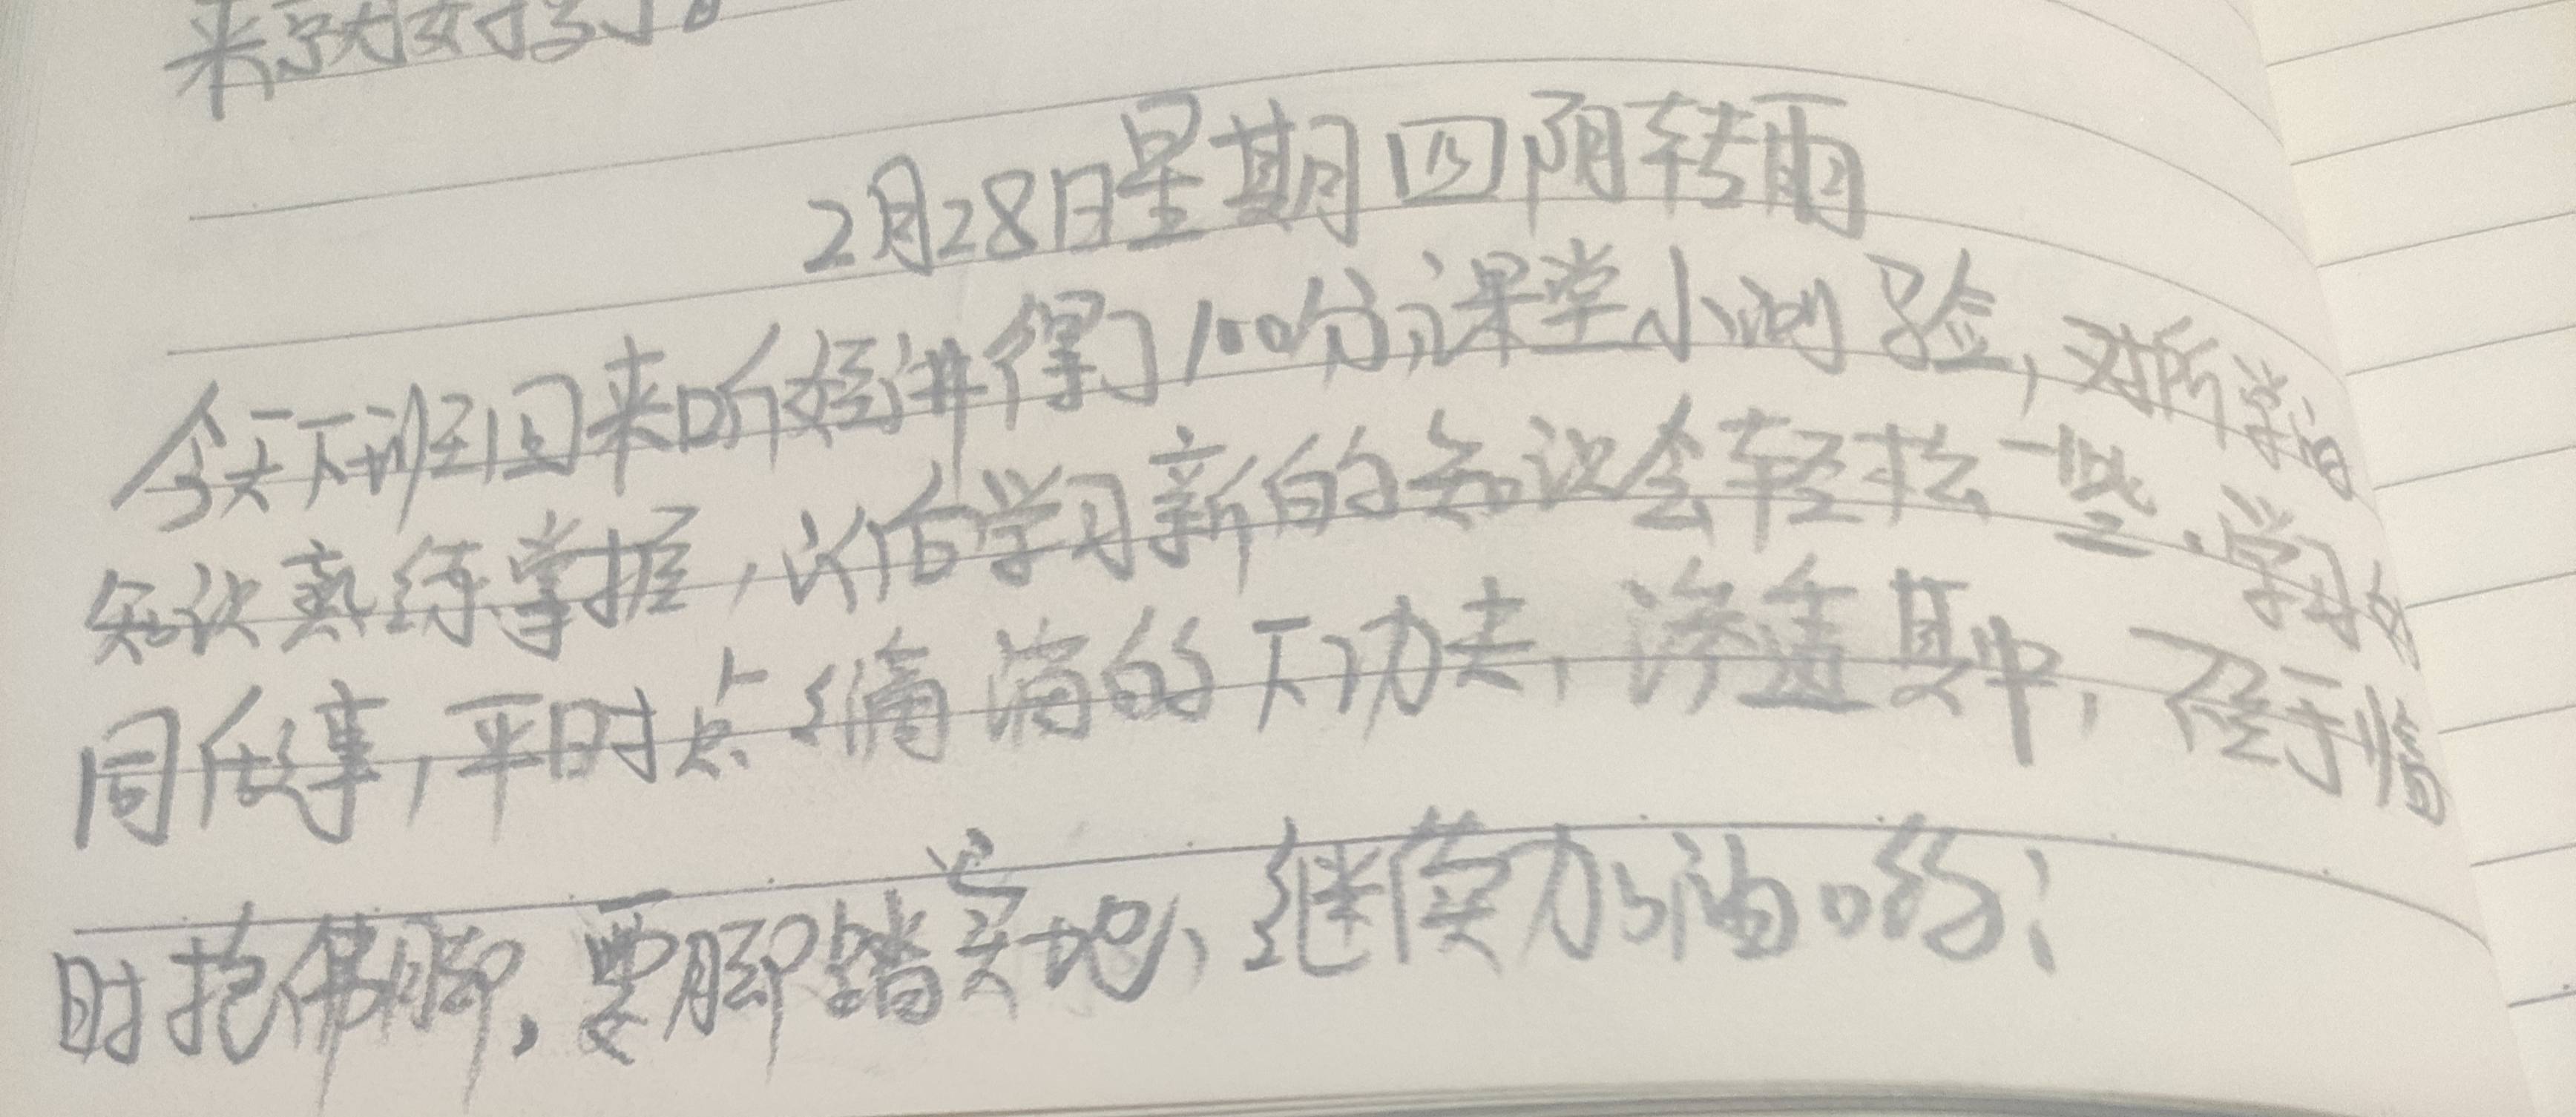 来就好了。
2月28日星期四阴转雨
今天下班回来听婷讲得了100分,课堂小测验,对所学的
知识熟练掌握,以后学习新的知识会轻松一些.学习如
同做事,平时点滴滴的下功夫,渗透其中,不至于临
时抱佛脚,要脚踏实地、继续加油哟!